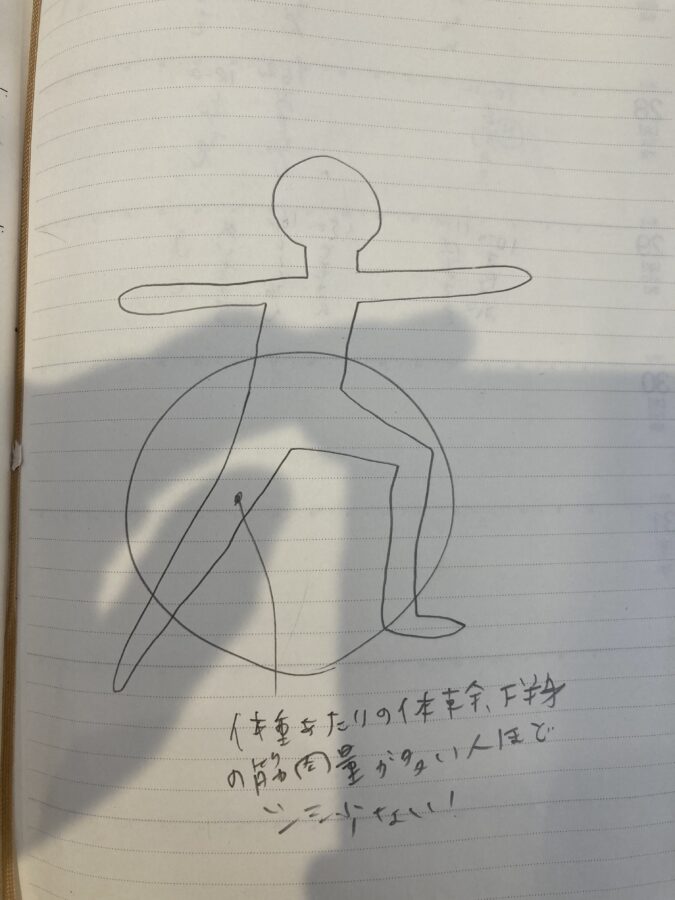 体重あたりの体幹、下半身
の筋肉量が多い人ほど
シミ少ない!